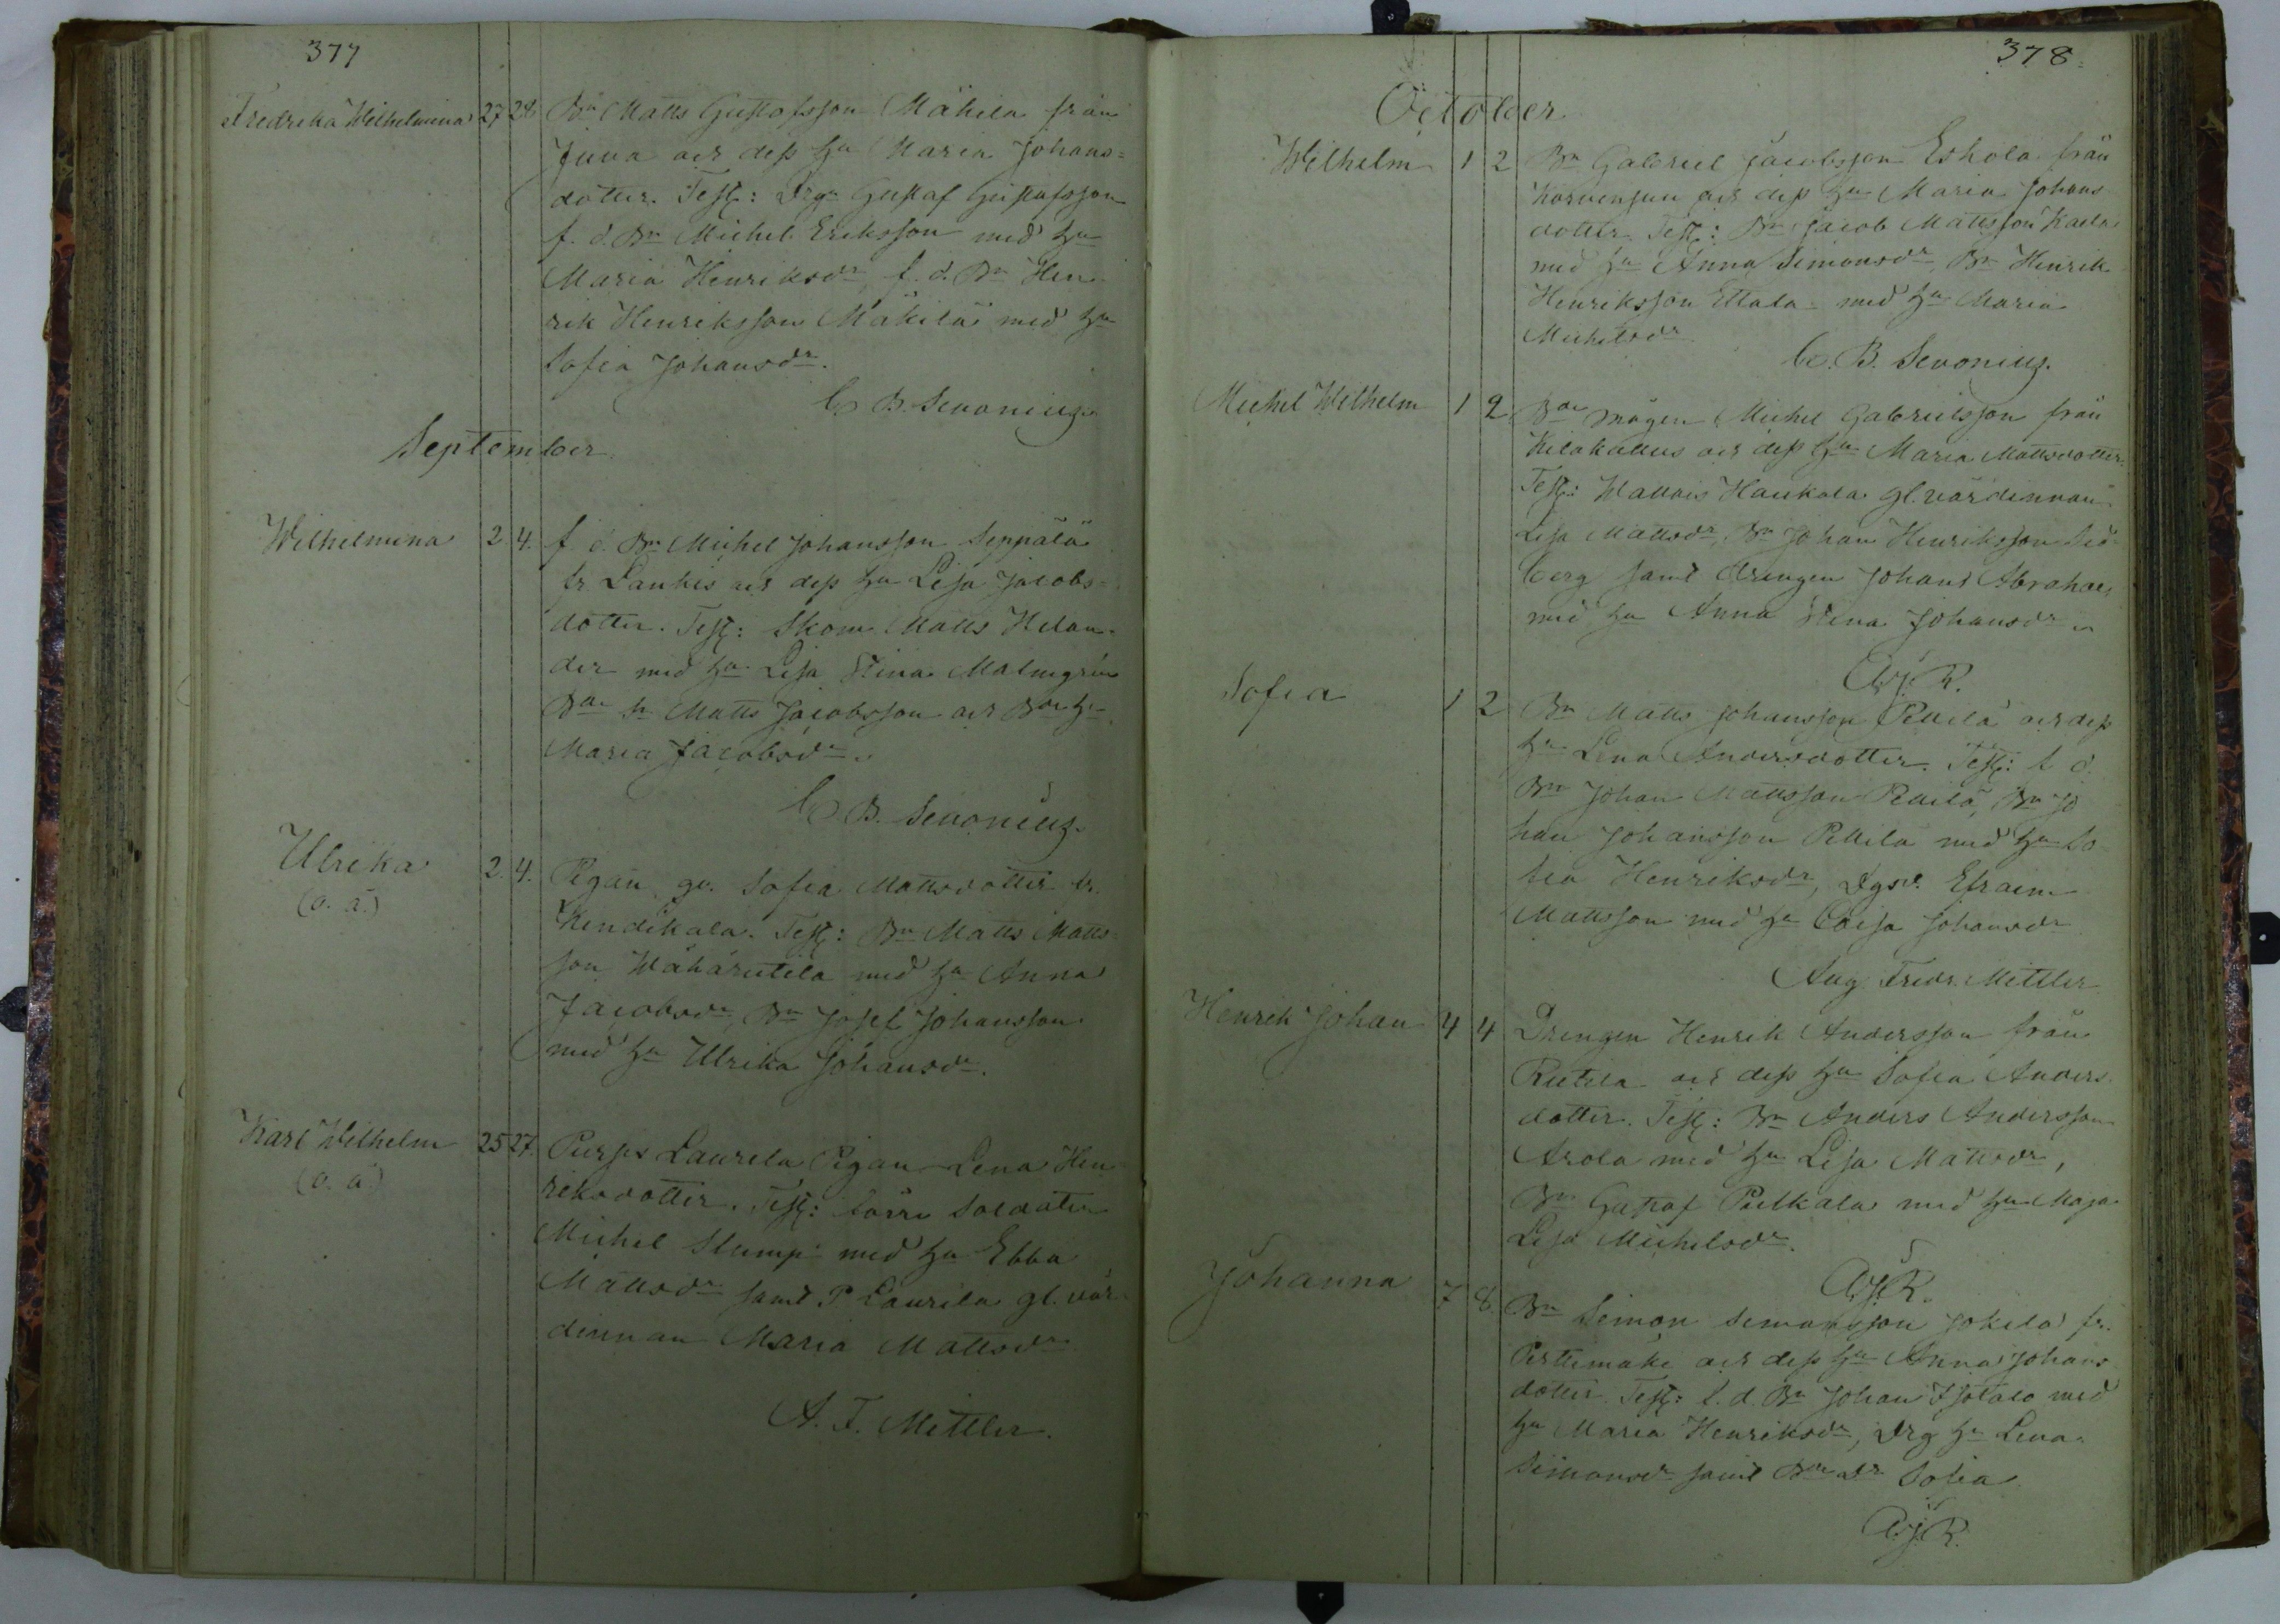 377
Fredrika Wilhelmina 27 28 Bn Matts Gustafsson Mäkila från
Juva och dess hu Maria Johans=
dotter. Test: Drg Gustaf Gustafsson
f. d. Bn Michel Eriksson med hu
Maria Henriksdr, f. d. Bn Hen
rik Henriksson Mäkilä med hu
Sofia Johansdr.
C B. Sevonius
September
Wilhelmina 2. 4. f d. Bn Michel Johansson Seppälä
fr. Lauhis och dess hu Lisa Jacobs=
dotter. Test: Skom Matts Helan=
der med hu Lisa Stina Malmgren
Bde sn Matts Jacobsson och Bde hu
Maria Jacobsdr.
C B. Sevonius.
Ulrika 2. 4. Pigan gv. Sofia Mattsdotter fr.
(o. ä.)
Kendikala. Test: Bn Matts Matts=
son Wähärutila med hu Anna
Jacobsdr, Bn Josef Johansson
med hu Ulrika Johansdr.
Karl Wilhelm 25 27. Laurila Pigan Lena Hen
(o. ä.)
riksdotter. Test: Soldaten
Michel Stump med hu Ebba
Mattsdr samt P Laurila gl. vär
dinnan Maria Mattsdr
A. F. Mittler.
378.
October
Wilhelm 1 2 Bn Gabriel Jacobsson Eskola från
Korvensuu och dess hu Maria Johans
dotter. Test: Bn Jacob Mattsson
med hu Anna Simonsdr, Bn Henrik
Henriksson Ettala med hu Maria
Michelsdr
C. B. Sevonius.
Michel Wilhelm 1 2. Bde mågen Michel Gabrielsson från
Kilakallus och dess hu Maria Mattsdotter.
Test: Haukala gl. värdinnan
Lisa Mattsdr, Bn Johan Henriksson
berg samt drengen Johan Abraham
med hu Anna Stina Johansdr.
Sofia 1 2 Bn Matts Johansson Pellilä och dess
hu Lena Andersdotter. Test: f d.
Bn Johan Mattsson Pellilä, Bn Jo
han Johansson Pellilä med hu So
fia Henriksdr, Efraim
Mattsson med hu Caisa Johansdr
Aug. Fredr. Mittler
Henrik Johan 4 4 Drengen Henrik Andersson från
Rutila och dess hu Sofia Anders
dotter. Test: Bn Anders Andersson
Arola med hu Lisa Mattsdr,
Bn Gustaf Pelkala med hu Maja
Lisa Michelsdr.
Johanna 7 8. Bn Simon Simonsson Jokela fr.
Perttimäki och dess hu Anna Johans
dotter. Test: f. d. Bn Johan Isotalo med
hu Maria Henriksdr, Drg hu Lena
Simonsdr samt Bde dr Sofia